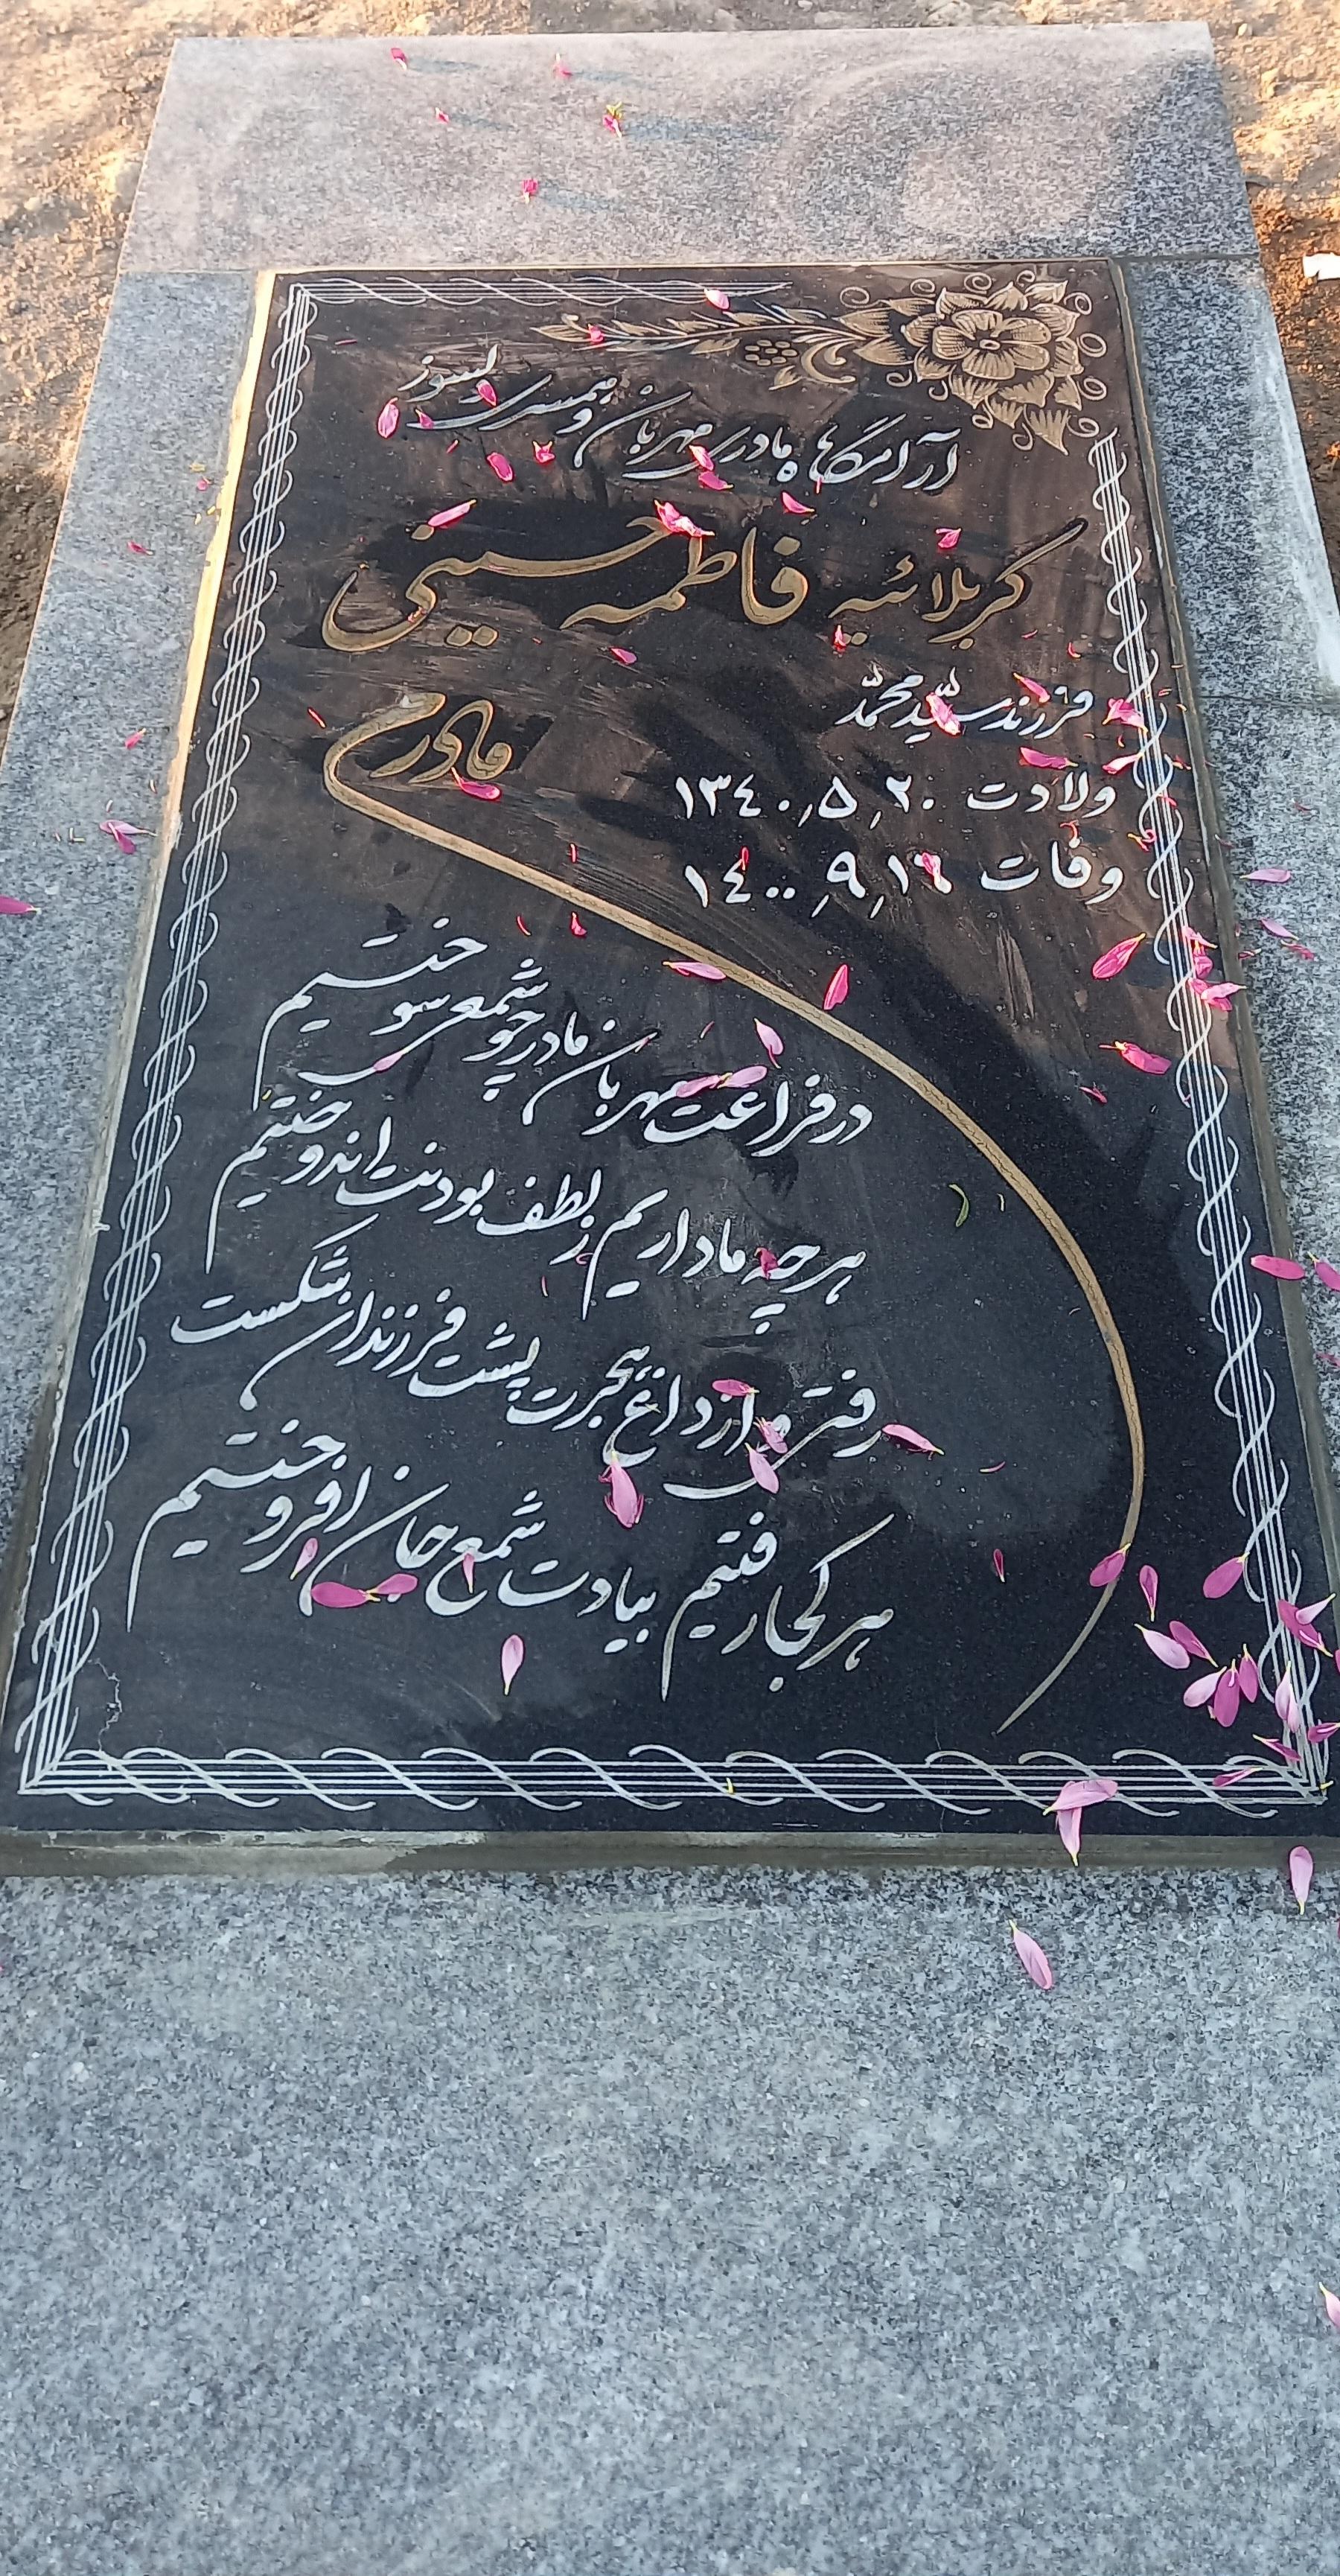 آرامگاه مادری مهربان و همسری دلسوز
کربلائیه فاطمه حسینی
فرزند سیّد محمّد
ولادت ۱۳۴۰٫۵٫۲۰
وفات ۱۴۰۰٫۹٫۱۶
مادرم
در فراغت مهربان مادر چو شمعی سوختیم
هر چه ما داریم ز لطف بودنت اندوختیم
رفتی و از داغ هجرت پشت فرزندان شکست
هر کجا رفتیم بیادت شمع جان افروختیم